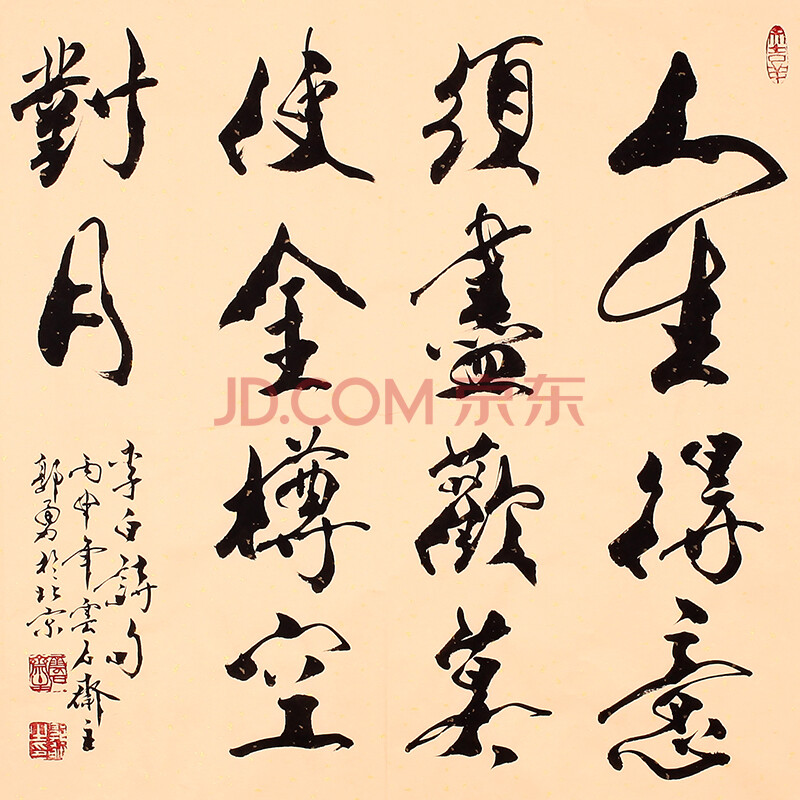 人生得意
須盡歡莫
使金樽空
對月
李白詩句
丙申年雲石齋主
郭勇於北京
JD.COM 京东